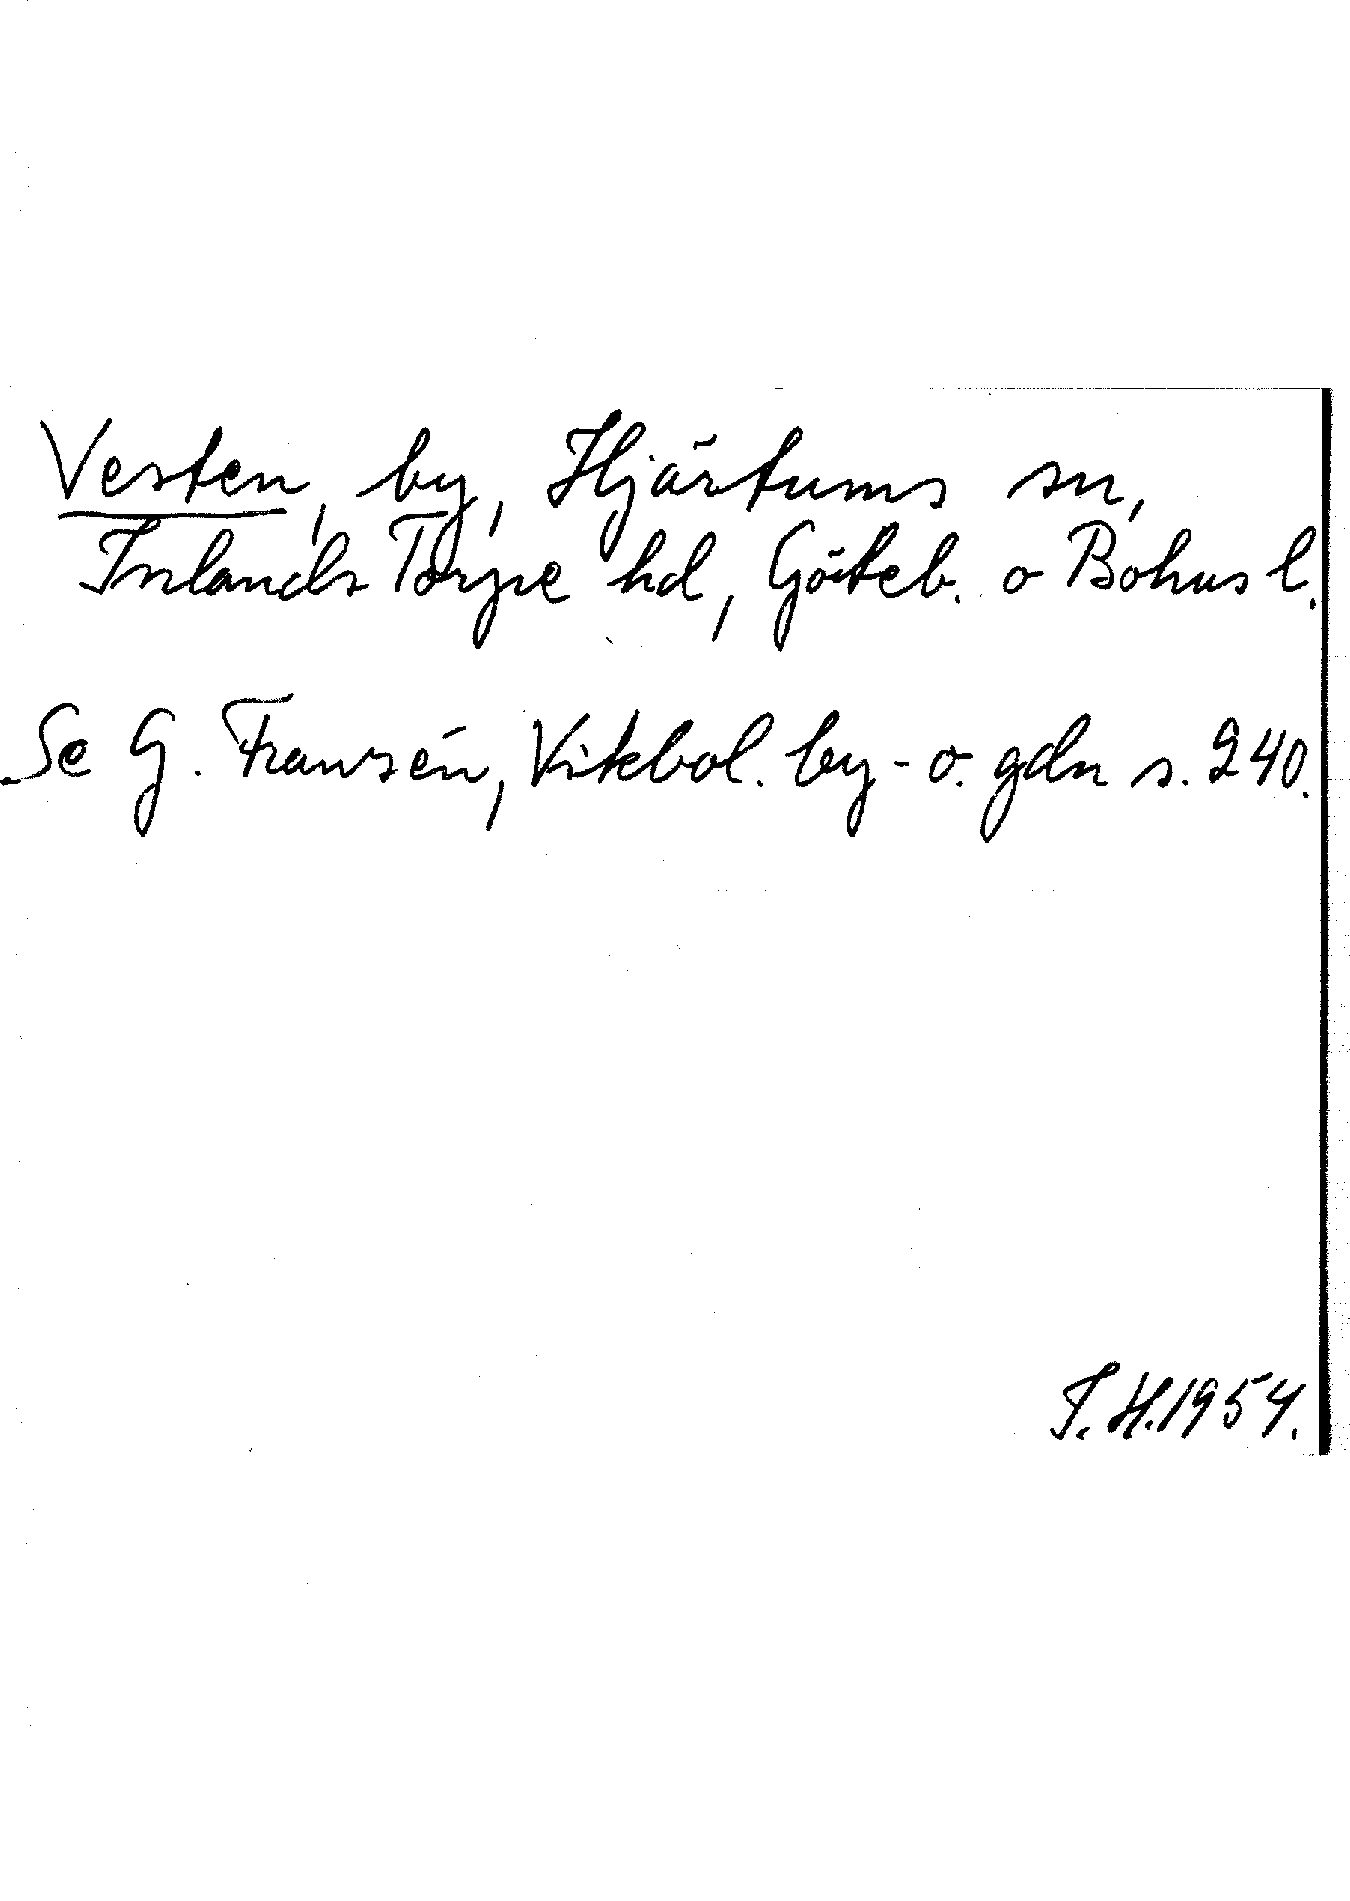 Vesten, by, Hjärtums sn,
Inlands Torpe hd, Göteb. o Bohus l.
Se G. Fransén, Vikbol. by- o. gdn s. 240.
T. H. 1954.